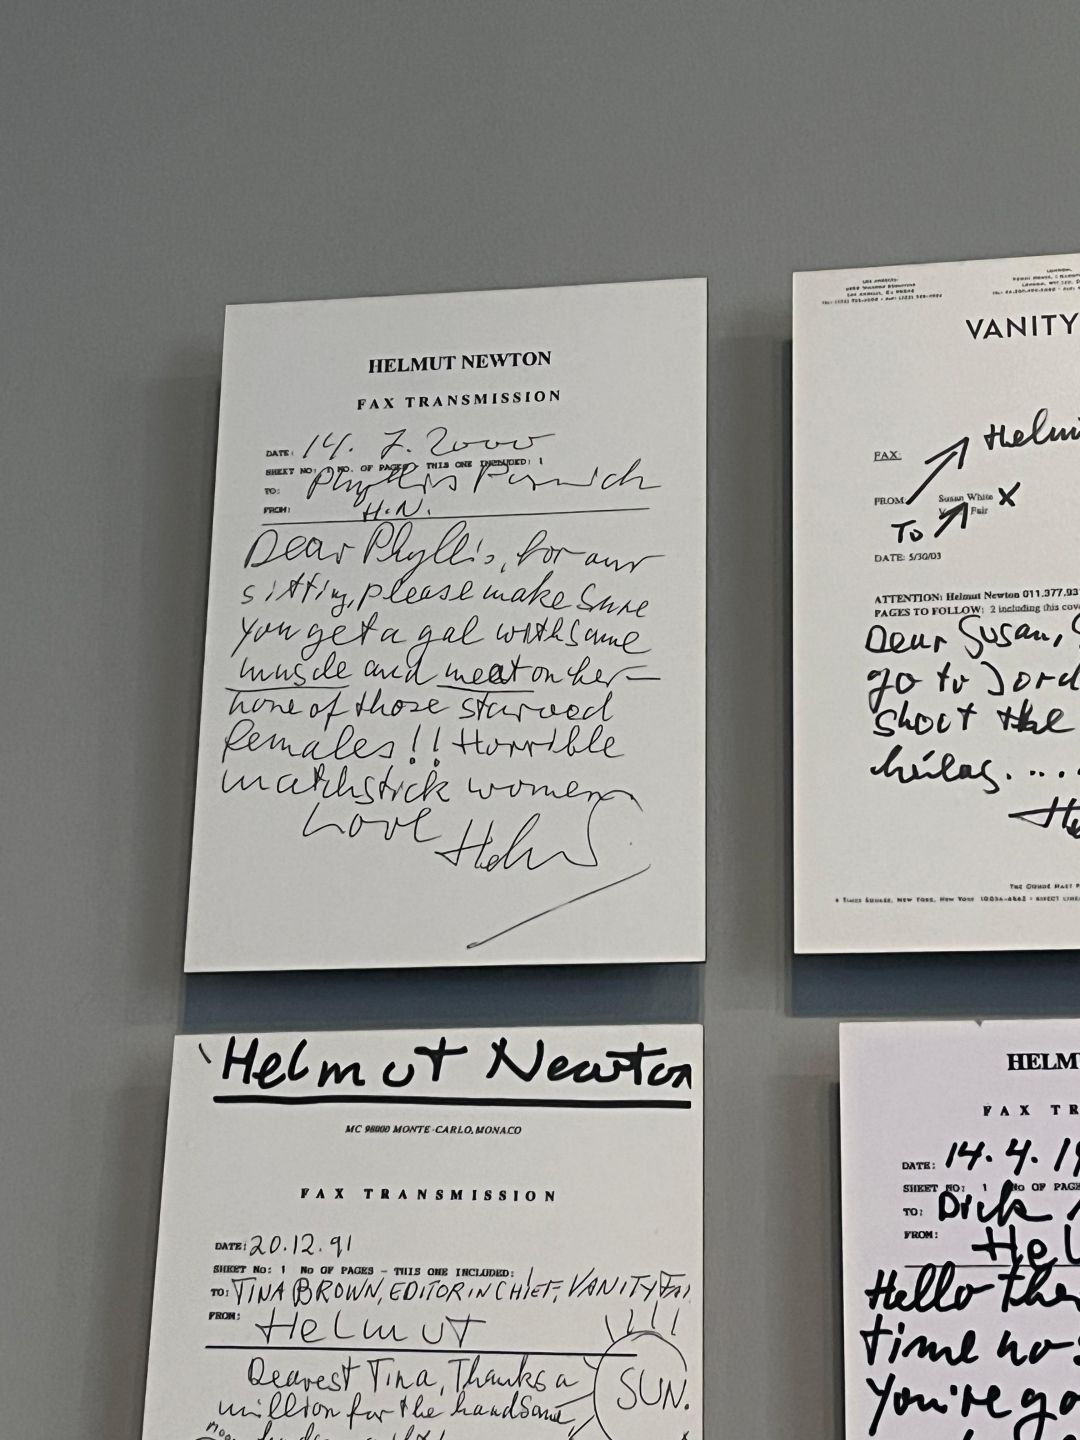 HELMUT NEWTON
FAX TRANSMISSION
DATE: 14. 7. 2000
SHEET NO: 1 NO. OF PAGES - THIS ONE INCLUDED: 1
TO: Phyllis
FROM: H.N.
Dear Phyllis, for our
sitting, please make sure
you get a gal with some
muscle and meat on her—
none of those starved
females!! Horrible
matchstick women
Love Helmut
LOS ANGELES:
LONDON:
VANITY
FAX:
FROM
Susan White X
Fair
To
DATE: 5/30/03
ATTENTION: Helmut Newton 011.377.93
PAGES TO FOLLOW: 2 including this
Dear Susan,
go to
shoot the
hélas....
NEW YORK, NEW YORK
Helmut Newton
MC 98000 MONTE-CARLO, MONACO
FAX TRANSMISSION
DATE: 20.12.91
SHEET NO: 1 NO OF PAGES - THIS ONE INCLUDED: 1
TO: TINA BROWN, EDITOR IN CHIEF, VANITY
FROM: Helmut
Dearest Tina, Thanks a
million for the handsome
SUN.
HELM
FAX TR
DATE: 14.4.19
SHEET NO: 1 NO OF
TO: Dick
FROM: Hel
Hello
time no
You're